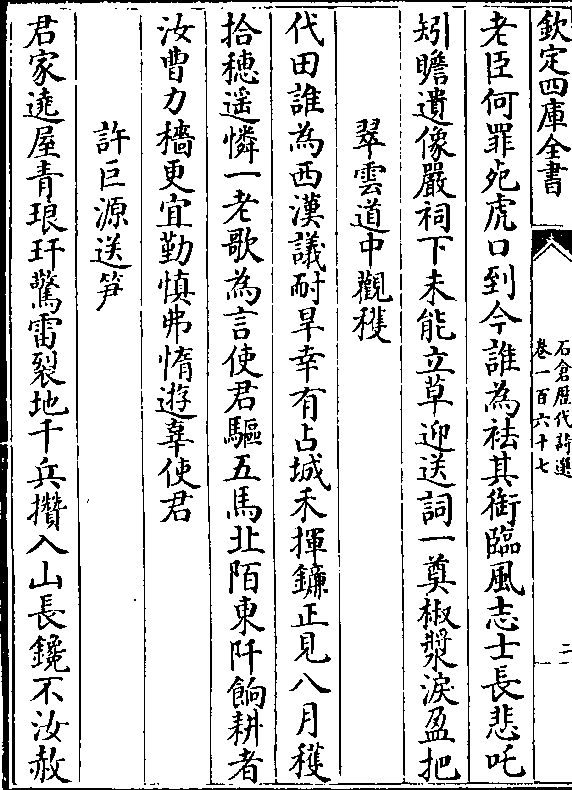 欽定四庫全書
石倉歴代詩選
卷一百六十七
二
老臣何罪死虎口到今誰為袪其銜臨風志士長悲吒
矧瞻遺像嚴祠下未能立草迎送詞一奠椒漿淚盈把
翠雲道中觀穫
代田誰為西漢議耐旱幸有占城禾揮鐮正見八月穫
拾穗遥憐一老歌為言使君驅五馬北陌東阡餉耕者
汝曹力穡更宜勤慎弗惰遊辜使君
許巨源送笋
君家遶屋青琅玕驚雷裂地千兵攢入山長鑱不汝赦